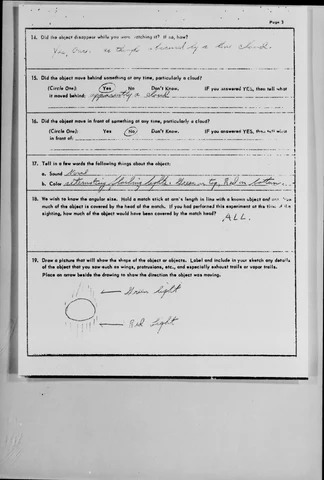 Page 3
14. Did the object disappear while you were watching it? If so, how?
Yes, Once. as though obscured by a cloud.
15. Did the object move behind something at any time, particularly a cloud?
(Circle One): Yes No Don't Know. IF you answered YES, then tell what
it moved behind: apparently a cloud
16. Did the object move in front of something at any time, particularly a cloud?
(Circle One): Yes No Don't Know. IF you answered YES, then tell what
in front of:
17. Tell in a few words the following things about the object:
a. Sound
b. Color alternating blinking lights. Green on top, Red on bottom.
18. We wish to know the angular size. Hold a match stick at arm's length in line with a known object and note how
much of the object is covered by the head of the match. If you had performed this experiment at the time of the
sighting, how much of the object would have been covered by the match head?
ALL.
19. Draw a picture that will show the shape of the object or objects. Label and include in your sketch any details
of the object that you saw such as wings, protrusions, etc., and especially exhaust trails or vapor trails.
Place an arrow beside the drawing to show the direction the object was moving.
Green light
Red Light